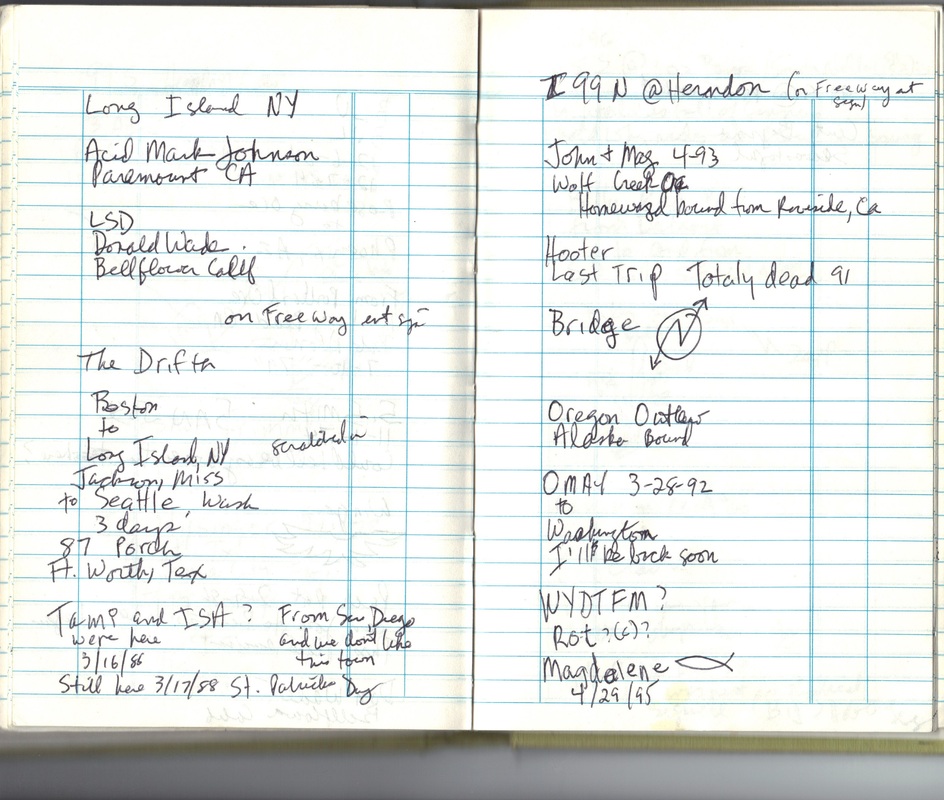 Long Island NY
Acid Mark Johnson
Paramount CA
LSD
Donald Wade.
Bellflower Calif
on Freeway ent sgn
The Drifter
Boston
to
Long Island, NY scratched in
Jackson, Miss
to Seattle, Wash
3 days,
87 Porch
Ft. Worth, Tex
Tami and ISA? From San Diego
were here and we don't like
3/16/88 this town
Still here 3/17/88 St. Patricks Day
I 99 N @ Herndon (on Freeway at
sign)
John + Mag 4-93
Wolf Creek
Homeward bound from Riverside, Ca
Hooter
Last Trip Totaly dead 91
Bridge N
Oregon Outlaw
Alaska Bound
OMAY 3-28-92
to
Washington
I'll be back soon
WYDTFM?
Rot?(c)?
Magdelene
4/29/95